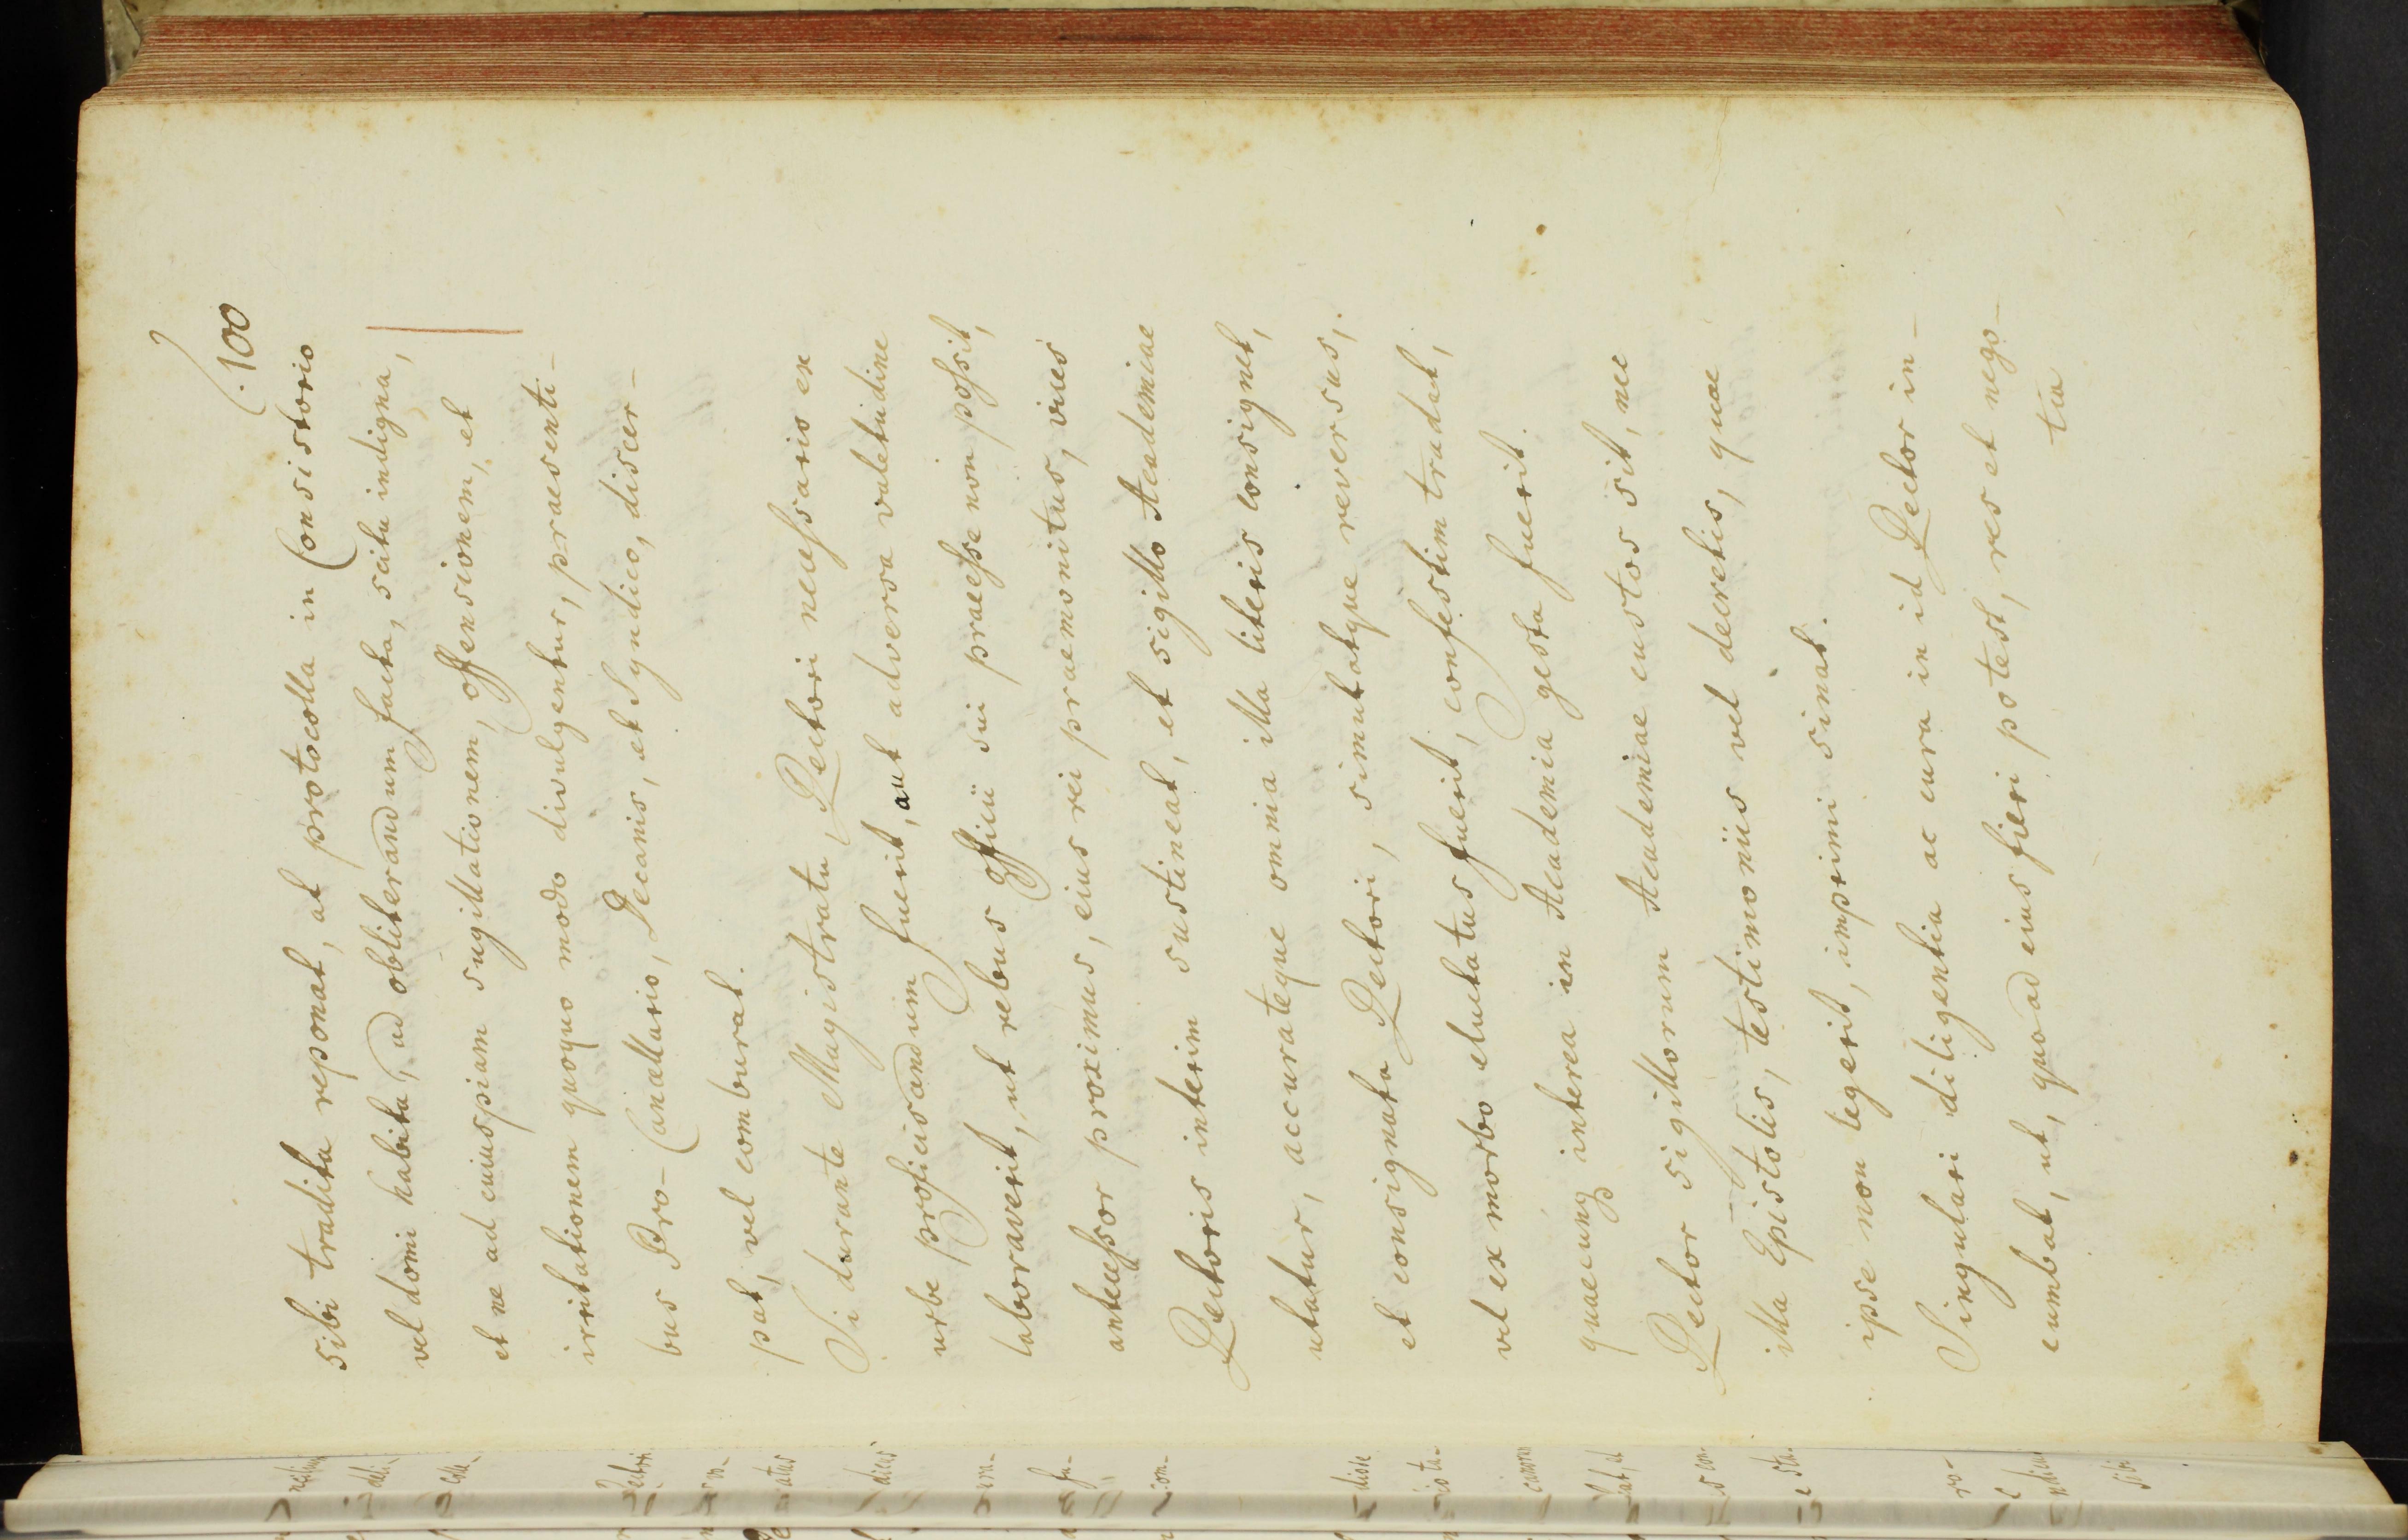 100
sibi tradita reponat, at protocolla in Consistorio
vel domi habita, ad obliterandum facta, scitu indigna,
et ne ad cuiuspiam sugillationem, offensionem, et
irritationem quoquo modo divulgentur, praesenti-
bus Pro-Cancellario, Decanis, et Syndico, discer-
pat, vel comburat.
Si durante Magistratu, Rectori necessario ex
urbe proficiscendum fuerit, aut adversa valetudine
laboraverit, ut rebus officii sui praeesse non possit,
antecessor proximus, eius rei praemonitus, vices
Rectoris interim sustineat, et sigillo Academiae
utatur, accurateque omnia illa literis consignet,
et consignata Rectori, simulatque reversus,
vel ex morbo eluctatus fuerit, confestim tradat,
quaecunq interea in Academia gesta fuerit.
Rector sigillorum Academiae custos sit, nec
illa Epistolis, testimoniis vel decretis, quae
ipse non legerit, imprimi sinat.
Singulari diligentia ac cura in id Rector in-
cumbat, ut, quoad eius fieri potest, res et nego-
tia